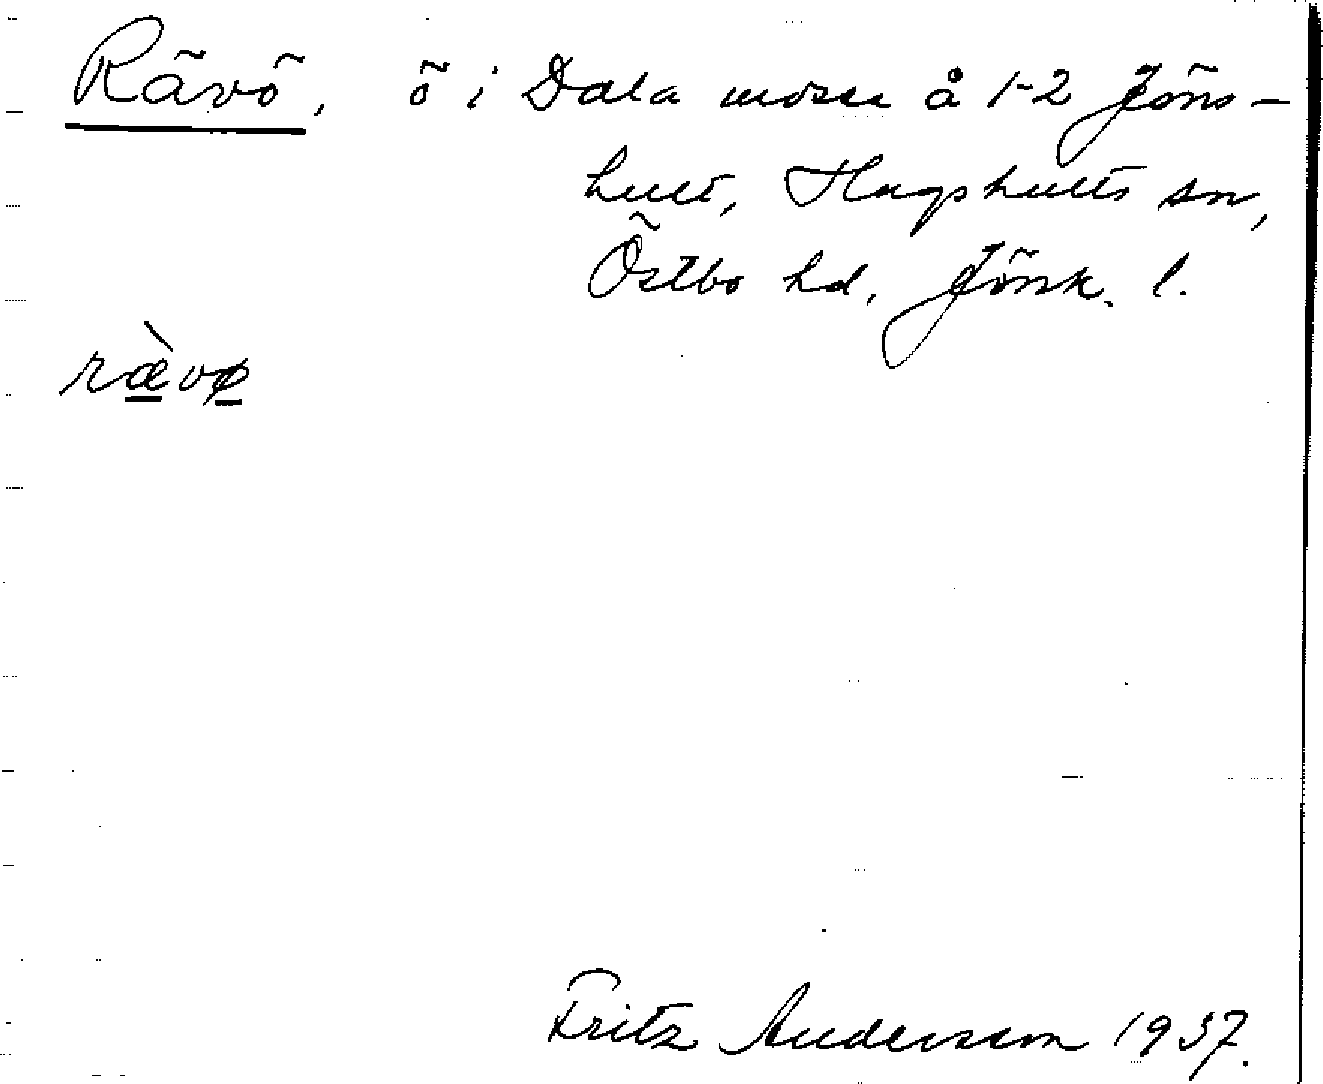 Rävö, ö i Dala mosse å 1-2 Jöns-
hult, Hagshults sn,
Östbo hd, Jönk. l.
rævø
Fritz Andersson 1937.